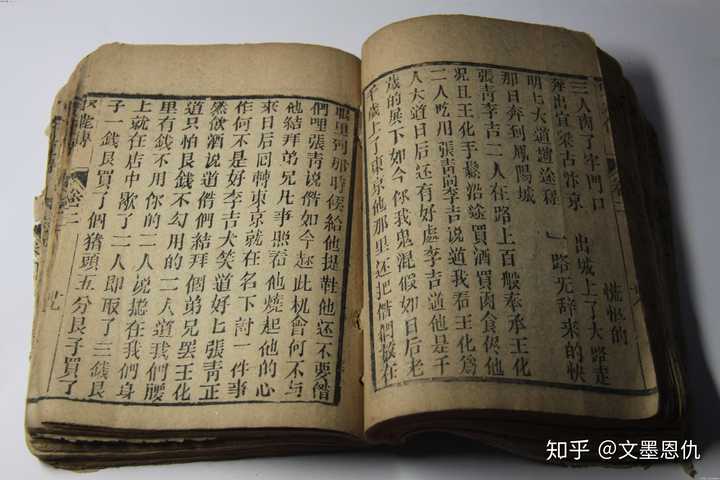 三人离了牢門口　的
奔出宜梁古汴京　出城上了大路走
明七大道遭途程　一路无辞来的快
那日奔到鳳陽城
張青李吉二人在路上百般奉承王化
况且王化手鬆沿途買酒買肉食俟他
二人吃用張青向李吉說道我看王化為
人大道日后还有好處李吉道他是千
歲的下如今你我鬼混假如日后老
千歲上了東京他那里还把偺們放在
眼里到那時候給他提鞋他还不要偺
們哩張青说偺如今趂此机會何不与
他结拜弟兄凡事照看他燒起他的心
來日后回轉東京就在名下討一件事
作何不是好李吉大笑道好七張青正
然飲酒说道偺們结拜個弟兄罢王化
道只怕艮錢不勾用的二人道我們腰
里有錢不用你的二人说捴在我們身
上就在店中歇了二人即取了三錢艮
子一錢艮買了個猪頭五分艮子買了
卷二
廿九
知乎 @文墨恩仇